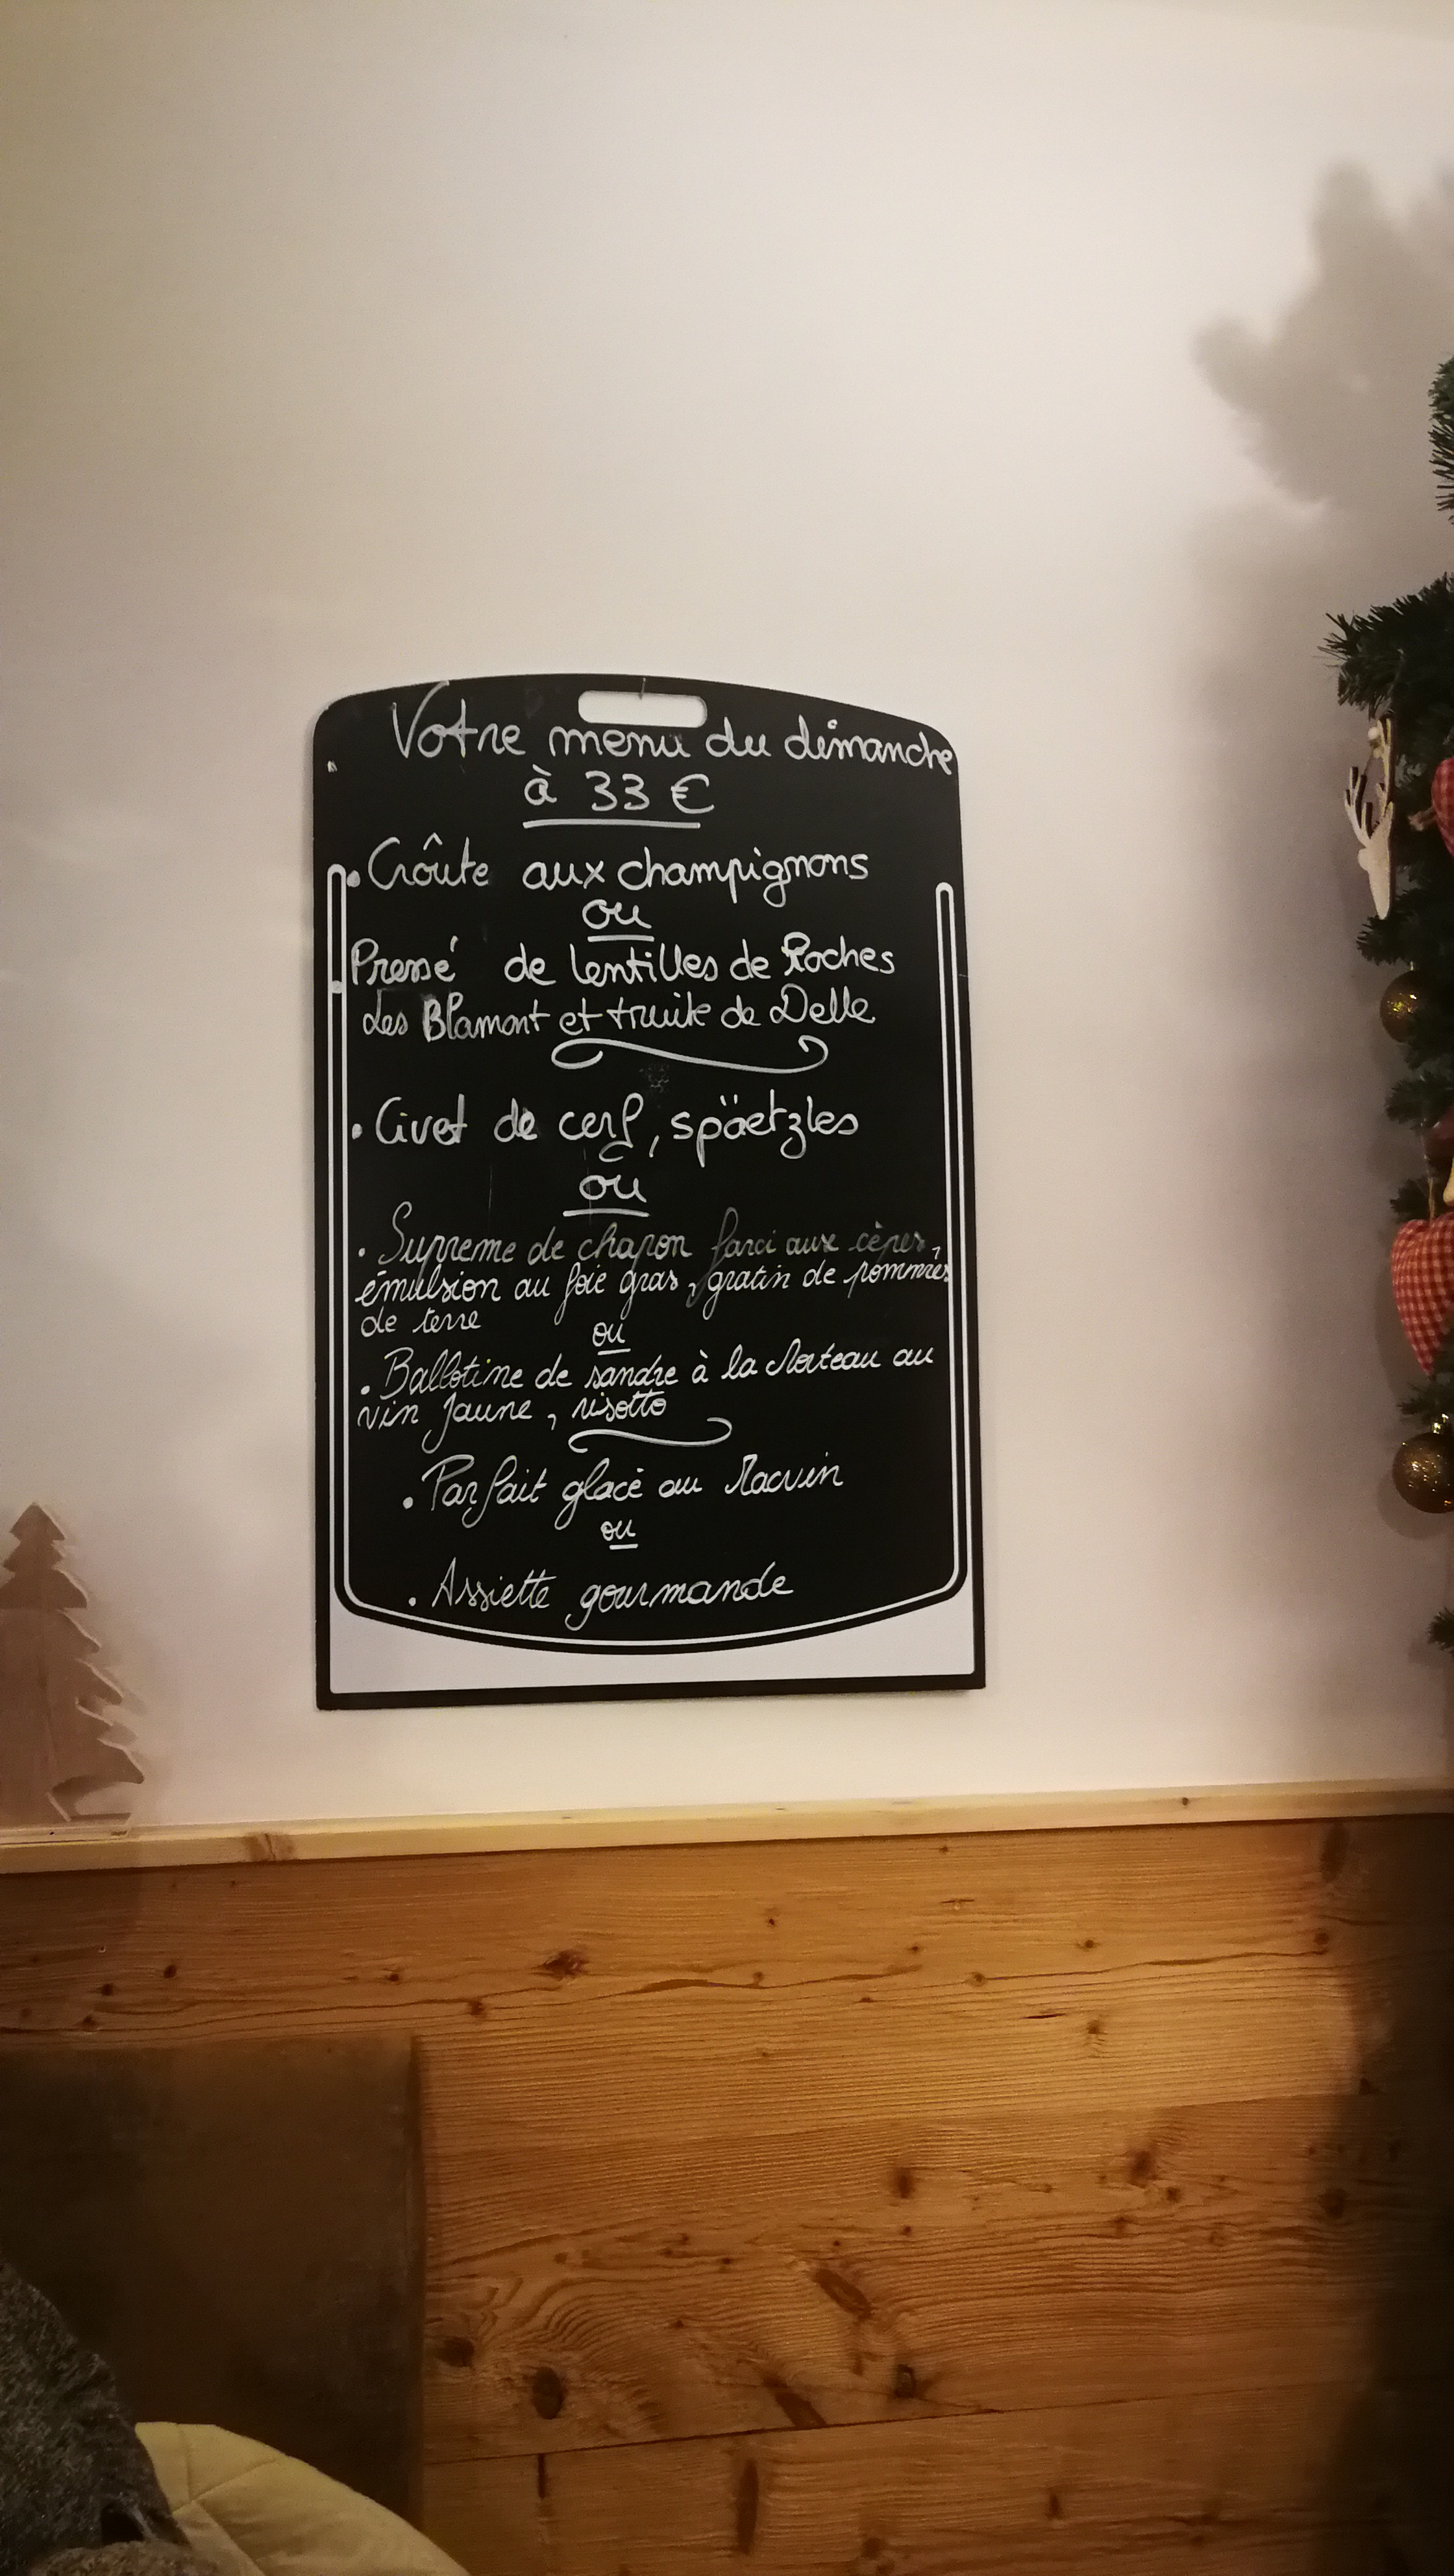 Votre menu du dimanche
à 33 €
• Croûte aux champignons
ou
• Pressé de lentilles de Roches
Les Blamont et truite de Delle
• Civet de cerf, späetzles
ou
• Supreme de chapon farci aux cèpes,
émulsion au foie gras, gratin de pommes
de terre
ou
• Ballotine de sandre à la Morteau au
vin jaune, risotto
• Parfait glacé au Macvin
ou
• Assiette gourmande